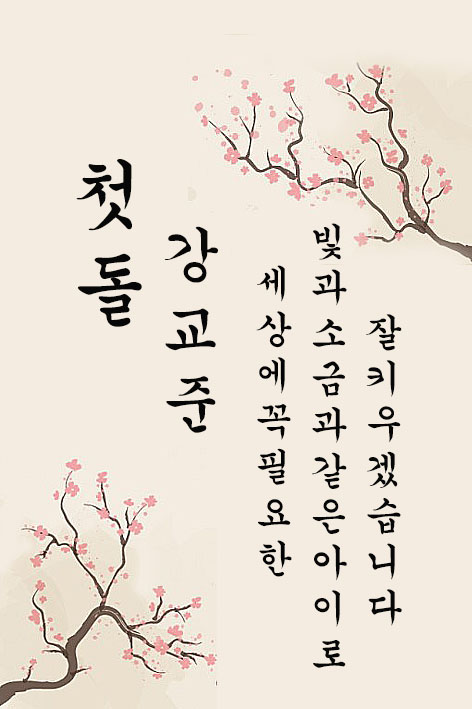 첫돌
강교준
세상에꼭필요한
빛과소금과같은아이로
잘키우겠습니다